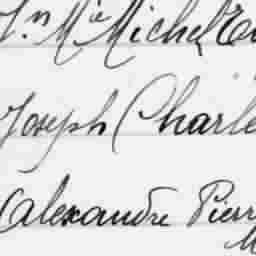 Jn Mie Michel
Joseph Charle
Alexandre Pierr
M